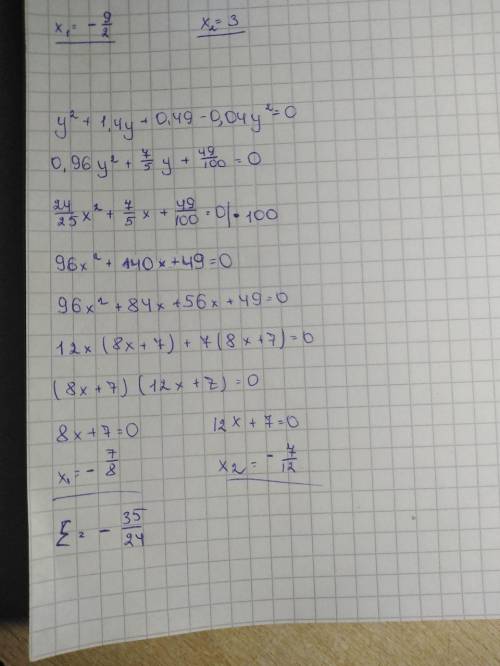 x₁ = - 9/2 x₂ = 3
y² + 1,4y + 0,49 - 0,04y² = 0
0,96y² + 7/5 y + 49/100 = 0
24/25 x² + 7/5 x + 49/100 = 0 | • 100
96x² + 140x + 49 = 0
96x² + 84x + 56x + 49 = 0
12x (8x + 7) + 7 (8x + 7) = 0
(8x + 7) (12x + 7) = 0
8x + 7 = 0 12x + 7 = 0
x₁ = - 7/8 x₂ = - 7/12
Σ = - 35/24